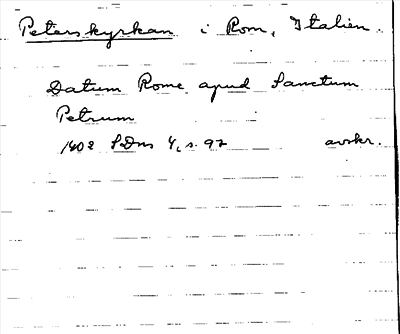 Peterskyrkan i Rom, Italien.
Datum Rome apud Sanctum
Petrum
1402 SDns 4, s. 97 avskr.